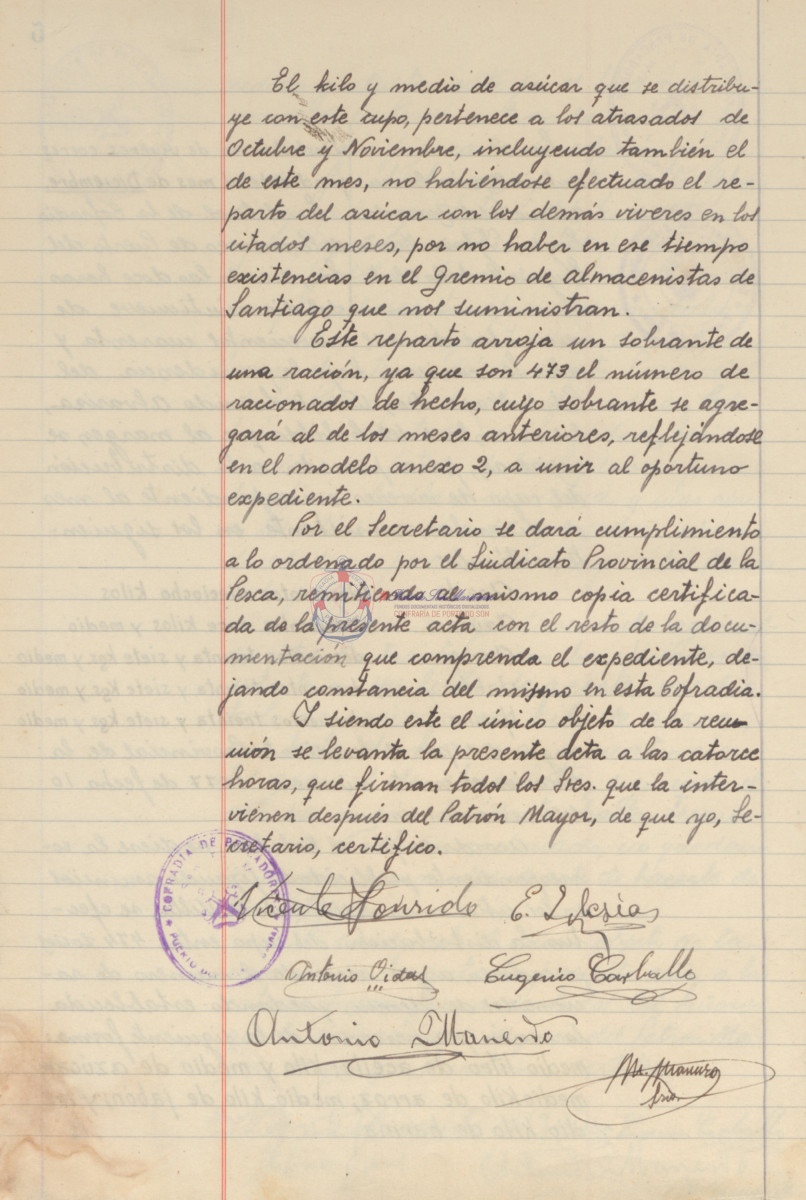 El kilo y medio de asúcar que se distribu-
ye con este cupo, pertenece a los atrasados de
Octubre y Noviembre, incluyendo también el
de este mes, no habiéndose efectuado el re-
parto del asúcar con los demás viveres en los
citados meses, por no haber en ese tiempo
existencias en el Gremio de almacenistas de
Santiago que nos suministran.
Este reparto arroja un sobrante de
una ración, ya que son 473 el número de
racionados de hecho, cuyo sobrante se agre-
gará al de los meses anteriores, reflejándose
en el modelo anexo 2, a unir al oportuno
expediente.
Por el Secretario se dará cumplimiento
a lo ordenado por el Sindicato Provincial de la
Pesca, remitiendo al mismo copia certifica-
da de la presente acta con el resto de la docu-
mentación que comprenda el expediente, de-
jando constancia del mismo en esta Cofradia.
Y siendo este el único objeto de la reu-
nión se levanta la presente acta a las catorce
horas, que firman todos los Sres. que la inter-
vienen después del Patrón Mayor, de que yo, Se-
cretario, certifico.
COFRADIA DE PESCADORES
PUERTO
Vicente E. Iglesias
Antonio Vidal Eugenio Carballo
Antonio
FONDOS DOCUMENTAIS HISTÓRICOS DIGITALIZADOS
CONFRARÍA DE PORTO DO SON